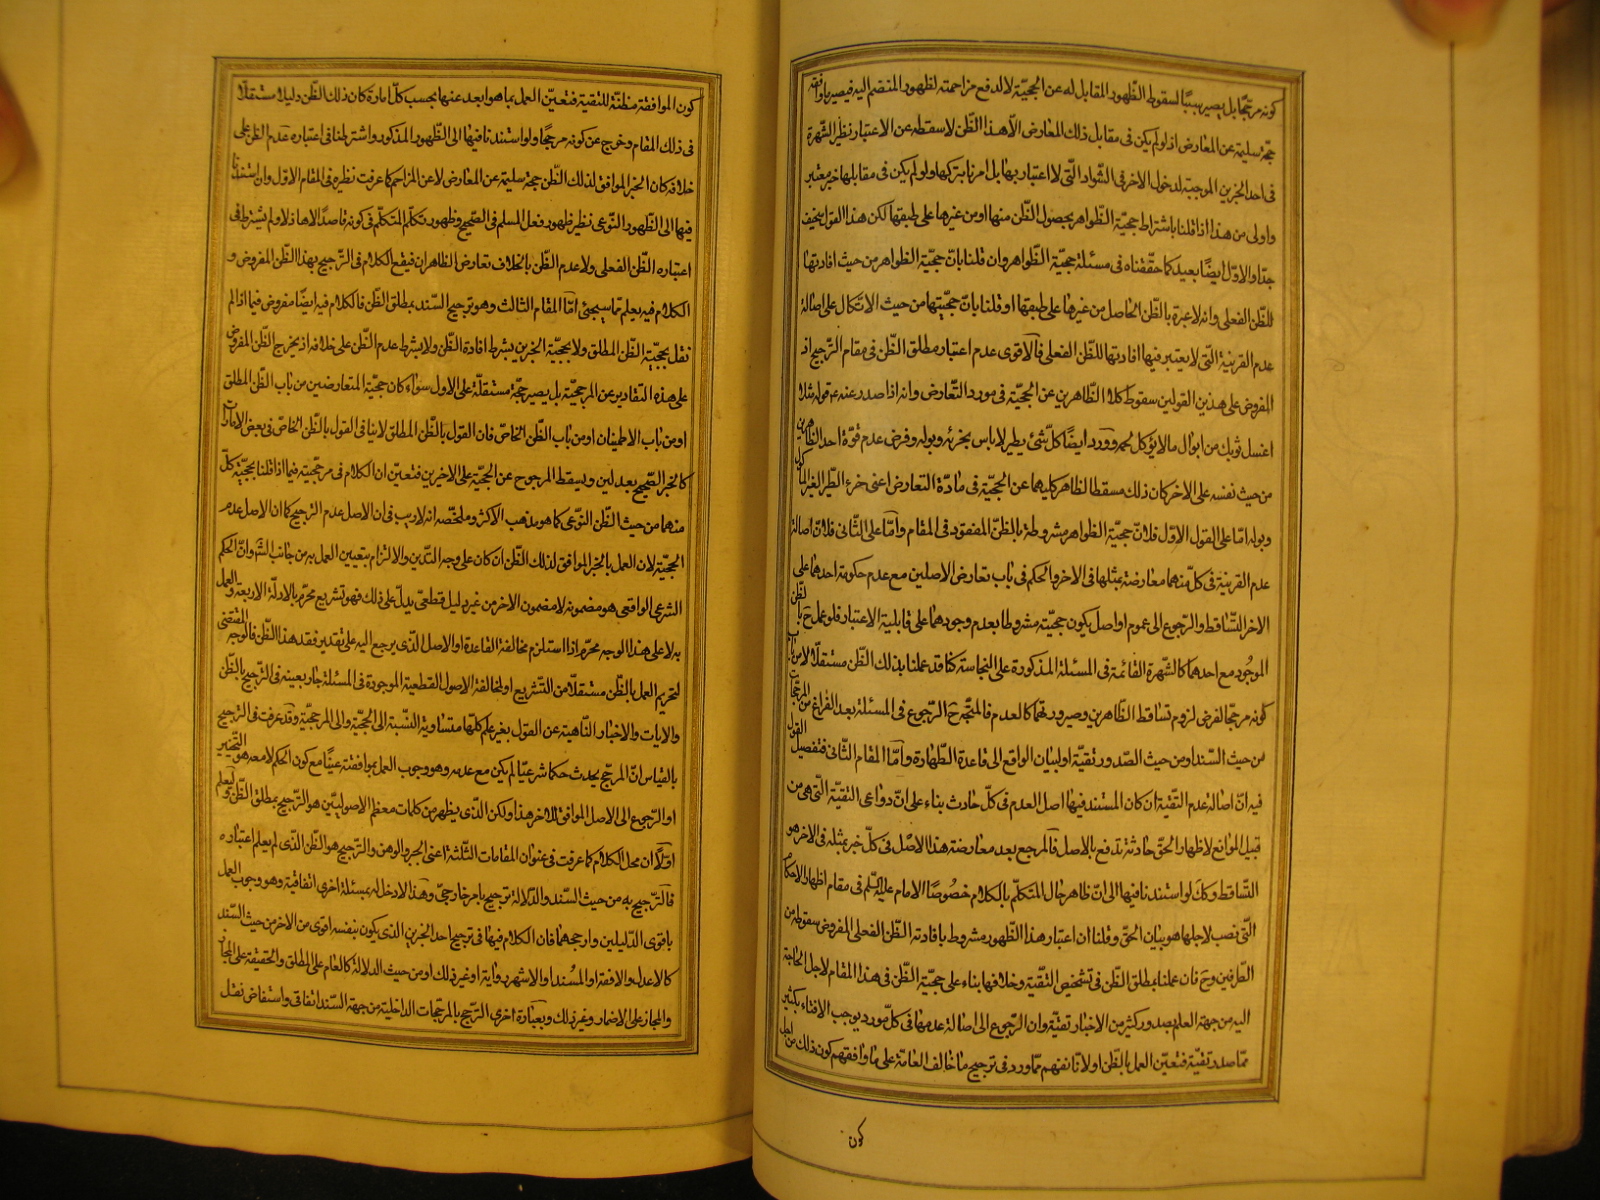 كونه مرجحا بل يصير سببا لسقوط الظهور المقابل له عن الحجية لا لدفع مزاحمته لظهور المنضم اليه فيصير ما وافقه
حجة سليمة عن المعارض اذ لو لم يكن فى مقابل ذلك المعارض الا هذا الظن لاسقطه عن الاعتبار نظير الشهرة
فى احد الخبرين الموجبة لدخول الاخر فى الشواذ التى لا اعتبار بها بل امرنا بتركها ولو لم يكن فى مقابلها خبر معتبر
واولى من هذا اذا قلنا باشتراط حجية الظواهر بحصول الظن منها او من غيرها على طبقها لكن هذا القول سخيف
جدا والاول ايضا بعيد كما حققناه فى مسئلة حجية الظواهر وان قلنا بان حجية الظواهر من حيث افادتها
للظن الفعلى وانه لا عبرة بالظن الحاصل من غيرها على طبقها او قلنا بان حجيتها من حيث الاتكال على اصالة
عدم القرينة التى لا يعتبر فيها افادتها للظن الفعلى فالاقوى عدم اعتبار مطلق الظن فى مقام الترجيح اذ
المفروض على هذين القولين سقوط كلا الظاهرين عن الحجية فى مورد التعارض وانه اذا صدر عنه ع قوله مثلا
اغسل ثوبك من ابوال ما لا يؤكل لحمه وورد ايضا كل شئ يطير لا باس بخرئه وبوله وفرض عدم قوة احد الظاهرين
من حيث نفسه على الاخر كان ذلك مسقطا لظاهر كليهما عن الحجية فى مادة التعارض اعنى خرء الطير الغير الماكول
وبوله اما على القول الاول فلان حجية الظواهر مشروطة بالظن المفقود فى المقام واما على الثانى فلان اصالة
عدم القرينة فى كل منهما معارضة بمثلها فى الاخر والحكم فى باب تعارض الاصلين مع عدم حكومة احدهما على
الاخر التساقط والرجوع الى عموم او اصل يكون حجيته مشروطا بعدم وجودهما على قابلية الاعتبار فلو عمل ح بالظن
الموجود مع احدهما كالشهرة القائمة فى المسئلة المذكورة على النجاسة كنا قد عملنا بذلك الظن مستقلا لا من باب
كونه مرجحا لفرض لزوم تساقط الظاهرين وصيرورتهما كالعدم فالمتجه ح الرجوع فى المسئلة بعد الفراغ من المرجحات
من حيث السند او من حيث الصدور تقية او لبيان الواقع الى قاعدة الطهارة واما المقام الثانى فتفصيل القول
فيه ان اصالة عدم التقية ان كان المستند فيها اصل العدم فى كل حادث بناء على ان دواعى التقية التى هى من
قبيل الموانع لاظهار الحق حادثة تدفع بالاصل فالمرجع بعد معارضة هذا الاصل فى كل خبر بمثله فى الاخر هو
التساقط وكك لو استند نافيها الى ان ظاهر حال المتكلم بالكلام خصوصا الامام عليه السلم فى مقام اظهار الاحكام
التى نصب لاجلها هو بيان الحق وقلنا ان اعتبار هذا الظهور مشروط بافادته الظن الفعلى المفروض سقوطه من
الطرفين وح فان عملنا بمطلق الظن فى تشخيص التقية وخلافها بناء على حجية الظن فى هذا المقام لاجل الحاجة
اليه من جهة العلم بصدور كثير من الاخبار تقية وان الرجوع الى اصالة عدمها فى كل مورد يوجب الافتاء بكثير
مما صدر تقية فتعين العمل بالظن او لانا نفهم مما ورد فى ترجيح ما خالف العامة على ما وافقهم كون ذلك من اجل
كون
كون الموافقة مظنة للتقية فتعين العمل بما هو ابعد عنها بحسب كل امارة كان ذلك الظن دليلا مستقلا
فى ذلك المقام وخرج عن كونه مرجحا ولو استند نافيها الى الظهور المذكور واشترطنا فى اعتباره عدم الظن على
خلافه كان الخبر الموافق لذلك الظن حجة سليمة عن المعارض لا عن المزاحم كما عرفت نظيره فى المقام الاول وان استندنا
فيها الى الظهور النوعى نظير ظهور فعل المسلم فى الصحيح وظهور تكلم المتكلم فى كونه قاصدا لا هاذلا ولم يشترط فى
اعتباره الظن الفعلى ولا عدم الظن بالخلاف تعارض الظاهران فيقع الكلام فى الترجيح بهذا الظن المفروض و
الكلام فيه يعلم مما سيجئ اما المقام الثالث وهو ترجيح السند بمطلق الظن فالكلام فيه ايضا مفروض فيما اذا لم
نقل بحجية الظن المطلق ولا بحجية الخبرين بشرط افادة الظن ولا بشرط عدم الظن على خلافه اذ يخرج الظن المفروض
على هذه التقادير عن المرجحية بل يصير حجة مستقلة على الاول سواء كان حجية المتعارضين من باب الظن المطلق
او من باب الاطمينان او من باب الظن الخاص فان القول بالظن المطلق لا ينافى القول بالظن الخاص فى بعض الامارات
كالخبر الصحيح بعدلين ويسقط المرجوح عن الحجية على الاخيرين فتعين ان الكلام فى مرجحيته فيما اذا قلنا بحجية كل
منهما من حيث الظن النوعى كما هو مذهب الاكثر وملخصه انه لا ريب فى ان الاصل عدم الترجيح كما ان الاصل عدم
الحجية لان العمل بالخبر الموافق لذلك الظن ان كان على وجه التدين والالتزام بتعيين العمل به من جانب الش وان الحكم
الشرعى الواقعى هو مضمونه لا مضمون الاخر من غير دليل قطعى يدل على ذلك فهو تشريع محرم بالادلة الاربعة والعمل
به لا على هذا الوجه محرم اذا استلزم مخالفة القاعدة او الاصل الذى يرجع اليه على تقدير فقد هذا الظن فالوجه المقتضى
لتحريم العمل بالظن مستقلا من التشريع او لمخالفة الاصول القطعية الموجودة فى المسئلة جار بعينه فى الترجيح بالظن
والايات والاخبار الناهية عن القول بغير علم كلها متساوية النسبة الى الحجية والى المرجحية وقد عرفت فى الترجيح
بالقياس ان المرجح يحدث حكما شرعيا لم يكن مع عدمه وهو وجوب العمل بموافقته عينا مع كون الحكم لا معه هو التخيير
او الرجوع الى الاصل الموافق للاخر هذا ولكن الذى يظهر من كلمات معظم الاصوليين هو الترجيح بمطلق الظن وليعلم
اولا ان محل الكلام كما عرفت فى عنوان المقامات الثلثة اعنى الجبر والوهن والترجيح هو الظن الذى لم يعلم اعتباره
فالترجيح به من حيث السند والدلالة ترجيح بامر خارجى وهذا لا دخل له بمسئلة اخرى اتفاقية وهو وجوب العمل
باقوى الدليلين وارجحهما فان الكلام فيها فى ترجيح احد الخبرين الذى يكون بنفسه اقوى من الاخر من حيث السند
كالاعدل والافقه او المسند او الاشهر رواية او غير ذلك او من حيث الدلالة كالعام على المطلق والحقيقة على المجاز
والمجاز على الاضمار وغير ذلك وبعبارة اخرى الترجيح بالمرجحات الداخلية من جهة السند اتفاقى واستفاض نقل